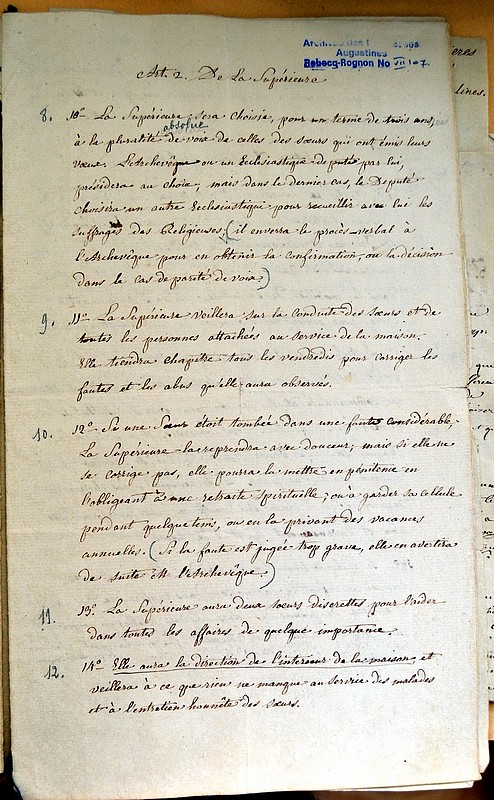 Archives des
Augustines
Rebecq-Rognon No VII 107
Art. 2. De La Supérieure
8. 10º La Supérieure sera choisie, pour un terme de trois ans,
absolue
à la pluralité de voix de celles des sœurs qui ont émis leurs
vœux. L'Archevêque ou un Ecclesiastique député par lui,
présidera au choix, mais dans le dernier cas, le Député
choisira un autre Ecclesiastique pour recueillir avec lui les
suffrages des Religieuses; (il enverra le procès-verbal à
l'Archevêque pour en obtenir la confirmation, ou la décision
dans le cas de parité de voix.)
9. 11º La Supérieure veillera sur la conduite des sœurs et de
toutes les personnes attachées au service de la maison.
Elle tiendra chapitre tous les vendredis pour corriger les
fautes et les abus qu'elle aura observés.
10. 12º Si une Sœur étoit tombée dans une faute considérable,
La Supérieure la reprendra avec douceur; mais si elle ne
se corrige pas, elle pourra la mettre en pénitence en
l'obligeant à une retraite spirituelle, ou à garder sa cellule
pendant quelque tems, ou en la privant des vacances
annuelles. (Si la faute est jugée trop grave, elle en avertira
de suite M l'Archevêque.)
11. 13º La Supérieure aura deux sœurs discrettes pour l'aider
dans toutes les affaires de quelque importance.
12. 14º Elle aura la direction de l'interieur de la maison, et
veillera à ce que rien ne manque au service des malades
et à l'entretien honnête des sœurs.